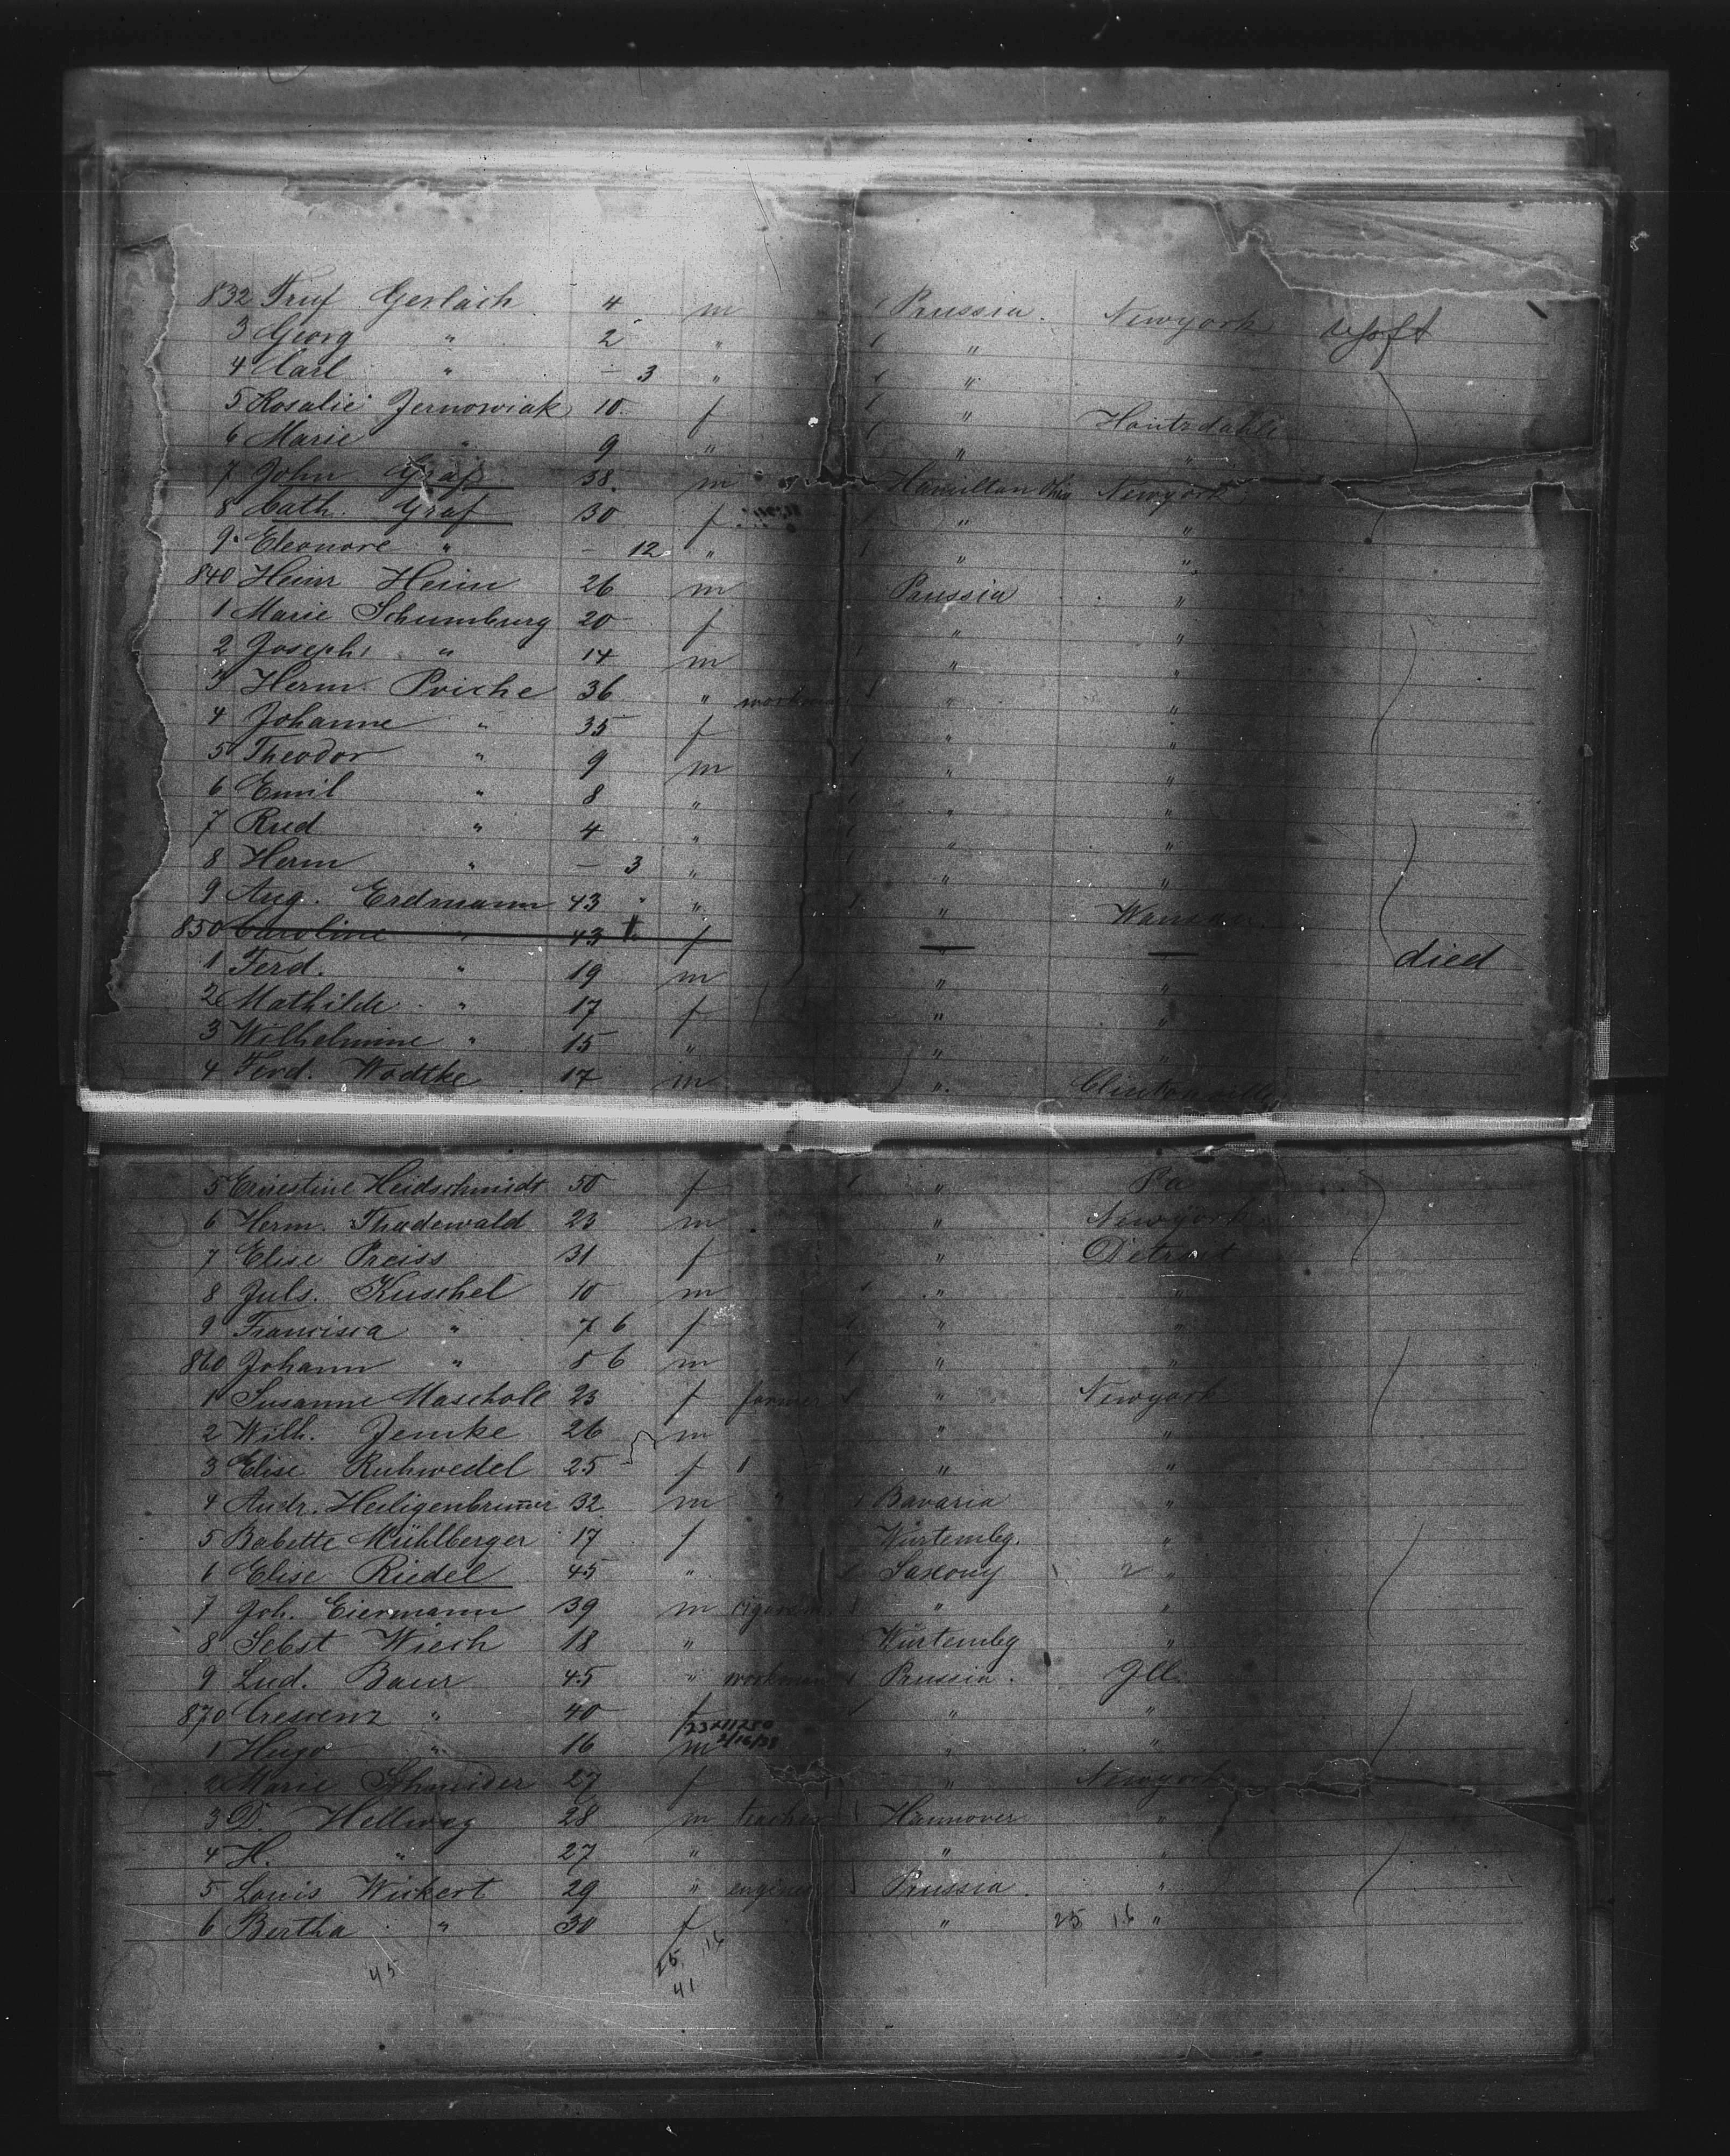 832 Gerlach 4 m Prussia. Newyork
3 Georg " 2 " "
4 Carl " — 3 " "
5 Rosalie Jernowiak 10 f " Houtzdahle
6 Marie " 9 " " "
7 John Graf 38 m Hamilton Ohio Newyork
8 Cath. Graf 30 f " "
9 Eleonore " — 12 " " "
840 Heinr Heim 26 m Prussia "
1 Marie Schumburg 20 f " "
2 Joseph " 14 m " "
3 Herm. Poiche 36 " workman " "
4 Johanne " 35 f " "
5 Theodor " 9 m " "
6 Emil " 8 " " "
7 Rud " 4 " " "
8 Herm " — 3 " " "
9 Aug. Erdmann 43 " " "
850 Caroline " 43 † f " died
1 Ferd. " 19 m " "
2 Mathilde " 17 f " "
3 Wilhelmine " 15 " " "
4 Ferd. Wodtke 17 m " Clintonville
5 Ernestine Heidschmidt 50 f " Pa
6 Herm. Thadewald 23 m " Newyork
7 Elise Preiss 31 f " Detroit
8 Juls. Kuschel 10 m " "
9 Francisca " 7 6 f " "
860 Johann " 5 6 m " "
1 Susanne Maschole 23 f farmer " Newyork
2 Wilh. Jemke 26 m " "
3 Elise Ruhwedel 25 f " " "
4 Andr. Heiligenbrunner 32 m " Bavaria "
5 Babette Mühlberger 17 f Würtembg. "
6 Elise Riedel 45 " Saxony 2 "
7 Joh. Eiermann 39 m " "
8 Sebst Wiech 18 " Würtembg "
9 Lud. Baur 45 " workman Prussia. Ill.
870 Crescenz " 40 f " "
1 Hugo " 16 m 2/16/38 " "
2 Marie Schneider 27 f " Newyork
3 D. Hellweg 28 m teacher Hannover "
4 H. " 27 " " "
5 Louis Wickert 29 " engineer Prussia "
6 Bertha " 30 f " 25 16 "
45 25 16
41